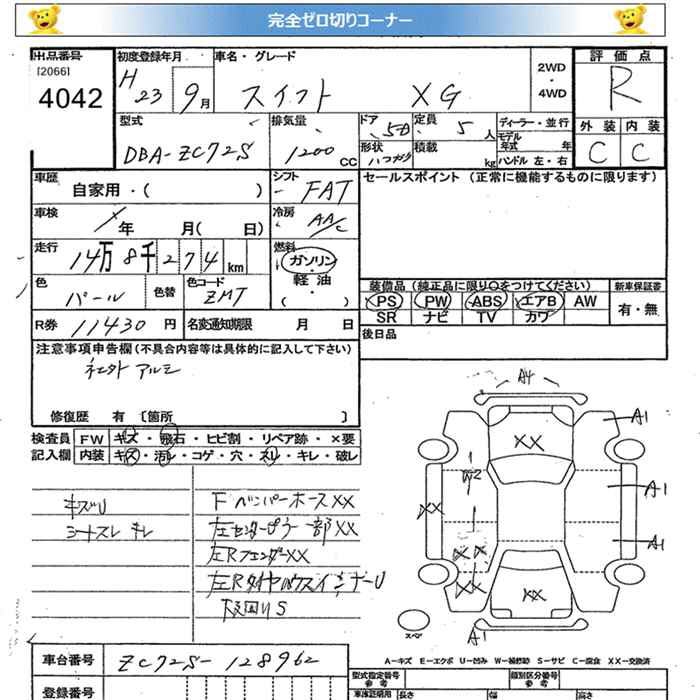 完全ゼロ切りコーナー
出品番号
[2066]
4042
初度登録年月
H 23 9月
車名・グレード
スイフト XG
2WD
・
4WD
評価点
R
外装 内装
C C
型式
DBA-ZC72S
排気量
1200 CC
ドア
5D
形状
ハツチバツク
定員
5人
積載
kg
ディーラー・並行
モデル年式 年
ハンドル 左・右
車歴
自家用・( )
シフト
FAT
セールスポイント (正常に機能するものに限ります)
車検
年 月( 日)
冷房
AAC
走行
14万8千274km
燃料
ガソリン
軽油
・( )
色
パール
色替
色コード
ZMT
装備品(純正品に限り〇をつけてください)
新車保証書
PS PW ABS エアB AW
SR ナビ TV カワ
有・無
R券 11430円
名変通知期限 月 日
後日品
注意事項申告欄(不具合内容等は具体的に記入して下さい)
社外アルミ
修復歴 有 〔箇所 〕
検査員記入欄
FW キズ・飛石・ヒビ割・リペア跡・×要
内装 キズ・汚レ・コゲ・穴・スレ・キレ・破レ
キズU
シートスレ キレ
F バンパーホースXX
左センターピラー一部XX
左RフェンダーXX
左RタイヤハウスインナーU
A4
A1
XX
A1
W2
XX
A1
A1
XX
XX
XX
スペア
A1
A−キズ E−エクボ U−凹み W−補修跡 S−サビ C−腐食 XX−交換済
車台番号
ZC72S-128962
登録番号
型式指定番号
参考
類別区分番号
参考
車庫証明用
長さ
幅
高さ